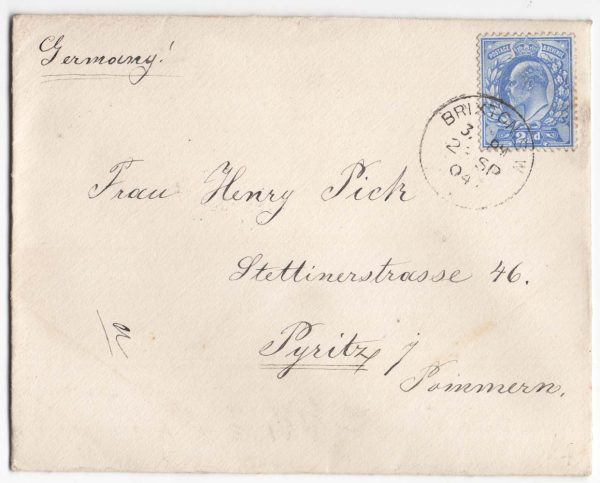 Germany!
POSTAGE & REVENUE
2½d
BRIXTON S.W
SP
04
Frau Henry Pick
Stettinerstrasse 46.
Pyritz
Pommern.